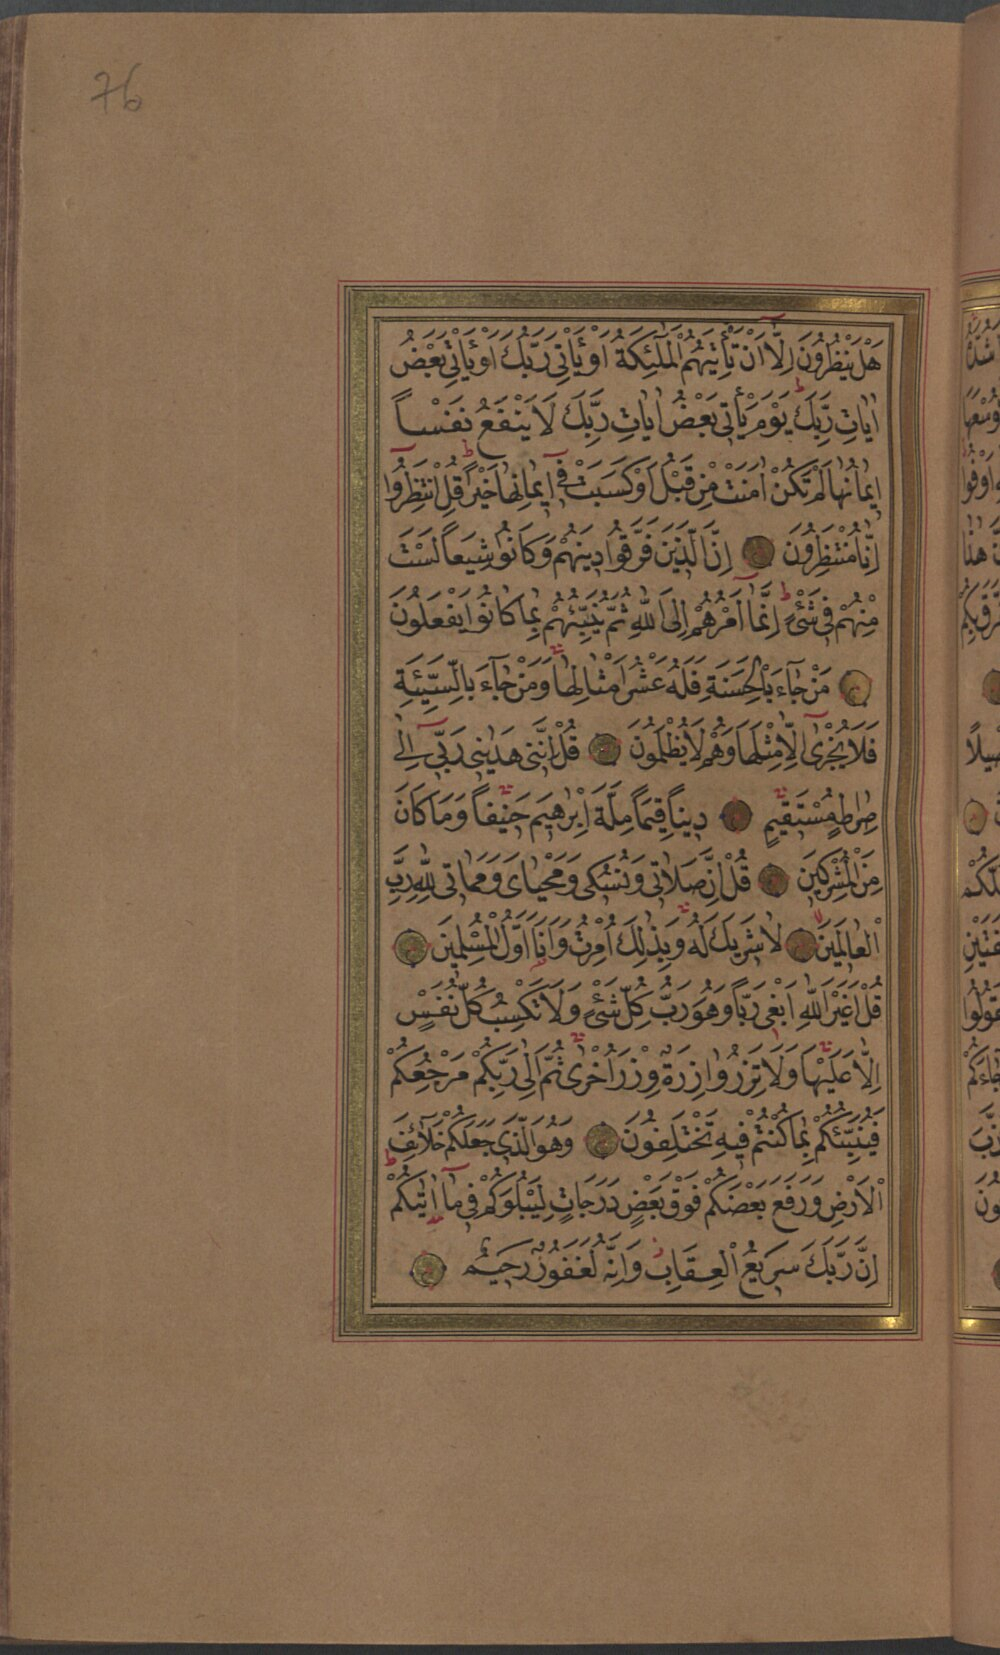 76
هَلْ يَنْظُرُونَ اِلَّٓا اَنْ تَأْتِيَهُمُ الْمَلٰٓئِكَةُ اَوْ يَأْتِىَ رَبُّكَ اَوْ يَأْتِىَ بَعْضُ
اٰيَاتِ رَبِّكَ يَوْمَ يَأْتِى بَعْضُ اٰيَاتِ رَبِّكَ لَا يَنْفَعُ نَفْساً
اِيمَانُهَا لَمْ تَكُنْ اٰمَنَتْ مِنْ قَبْلُ اَوْ كَسَبَتْ فِٓى اِيمَانِهَا خَيْراً قُلِ انْتَظِرُٓوا
اِنَّا مُنْتَظِرُونَ اِنَّ الَّذِينَ فَرَّقُوا دِينَهُمْ وَكَانُوا شِيَعاً لَسْتَ
مِنْهُمْ فِى شَىْءٍ اِنَّمَٓا اَمْرُهُمْ اِلَى اللّٰهِ ثُمَّ يُنَبِّئُهُمْ بِمَا كَانُوا يَفْعَلُونَ
مَنْ جَٓاءَ بِالْحَسَنَةِ فَلَهُ عَشْرُ اَمْثَالِهَا وَمَنْ جَٓاءَ بِالسَّيِّئَةِ
فَلَا يُجْزٰٓى اِلَّا مِثْلَهَا وَهُمْ لَا يُظْلَمُونَ قُلْ اِنَّنِى هَدٰينِى رَبِّٓى اِلٰى
صِرَاطٍ مُسْتَقِيمٍ دِيناً قِيَماً مِلَّةَ اِبْرٰهِيمَ حَنِيفاً وَمَا كَانَ
مِنَ الْمُشْرِكِينَ قُلْ اِنَّ صَلَاتِى وَنُسُكِى وَمَحْيَاىَ وَمَمَاتِى لِلّٰهِ رَبِّ
الْعَالَمِينَ لَا شَرِيكَ لَهُ وَبِذٰلِكَ اُمِرْتُ وَاَنَا اَوَّلُ الْمُسْلِمِينَ
قُلْ اَغَيْرَ اللّٰهِ اَبْغِى رَبّاً وَهُوَ رَبُّ كُلِّ شَىْءٍ وَلَا تَكْسِبُ كُلُّ نَفْسٍ
اِلَّا عَلَيْهَا وَلَا تَزِرُ وَازِرَةٌ وِزْرَ اُخْرٰى ثُمَّ اِلٰى رَبِّكُمْ مَرْجِعُكُمْ
فَيُنَبِّئُكُمْ بِمَا كُنْتُمْ فِيهِ تَخْتَلِفُونَ وَهُوَ الَّذِى جَعَلَكُمْ خَلَٓائِفَ
الْاَرْضِ وَرَفَعَ بَعْضَكُمْ فَوْقَ بَعْضٍ دَرَجَاتٍ لِيَبْلُوَكُمْ فِى مَٓا اٰتٰيكُمْ
اِنَّ رَبَّكَ سَرِيعُ الْعِقَابِ وَاِنَّهُ لَغَفُورٌ رَحِيمٌ